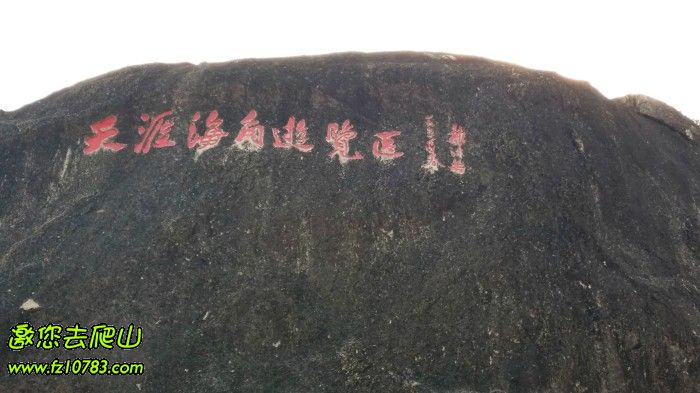 天涯海角游覽区
邀您去爬山
www.fz10783.com